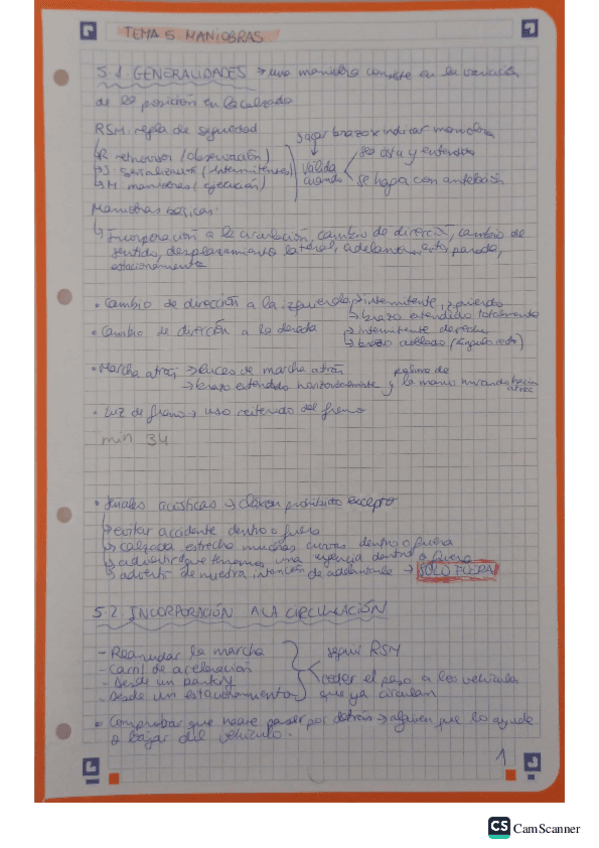 TEMA 5 MANIOBRAS
5.1. GENERALIDADES → una maniobra consiste en la variación
de la posición en la calzada
RSM: regla de seguridad
R retrovisor (observación)
S señalización (intermitentes)
M maniobras (ejecución)
sacar brazo x indicar maniobra
válida cuando
sea alta y extendida
se haga con antelación
Maniobras básicas:
↳ Incorporación a la circulación, cambio de dirección, cambio de
sentido, desplazamiento lateral, adelantamiento, parada,
estacionamiento
• Cambio de dirección a la izquierda → intermitente izquierdo
↳ brazo extendido totalmente
• Cambio de dirección a la derecha → intermitente derecho
↳ brazo doblado (ángulo recto)
• Marcha atrás → luces de marcha atrás
→ brazo extendido horizontalmente y palma de la mano mirando hacia atrás
• Luz de freno → uso reiterado del freno
min 34
• Señales acústicas → claxon prohibido excepto
↳ evitar accidente dentro o fuera
↳ calzada estrecha muchas curvas dentro o fuera
↳ advertir que tenemos una urgencia dentro o fuera
↳ advertir de nuestra intención de adelantar → SOLO FUERA
5.2. INCORPORACIÓN A LA CIRCULACIÓN
- Reanudar la marcha
- Carril de aceleración
- Desde un parking
- Desde un estacionamiento
seguir RSM
ceder el paso a los vehículos
que ya circulan
• Comprobar que nadie pase por detrás → alguien que lo ayude
a bajar del vehículo.
1
CS CamScanner